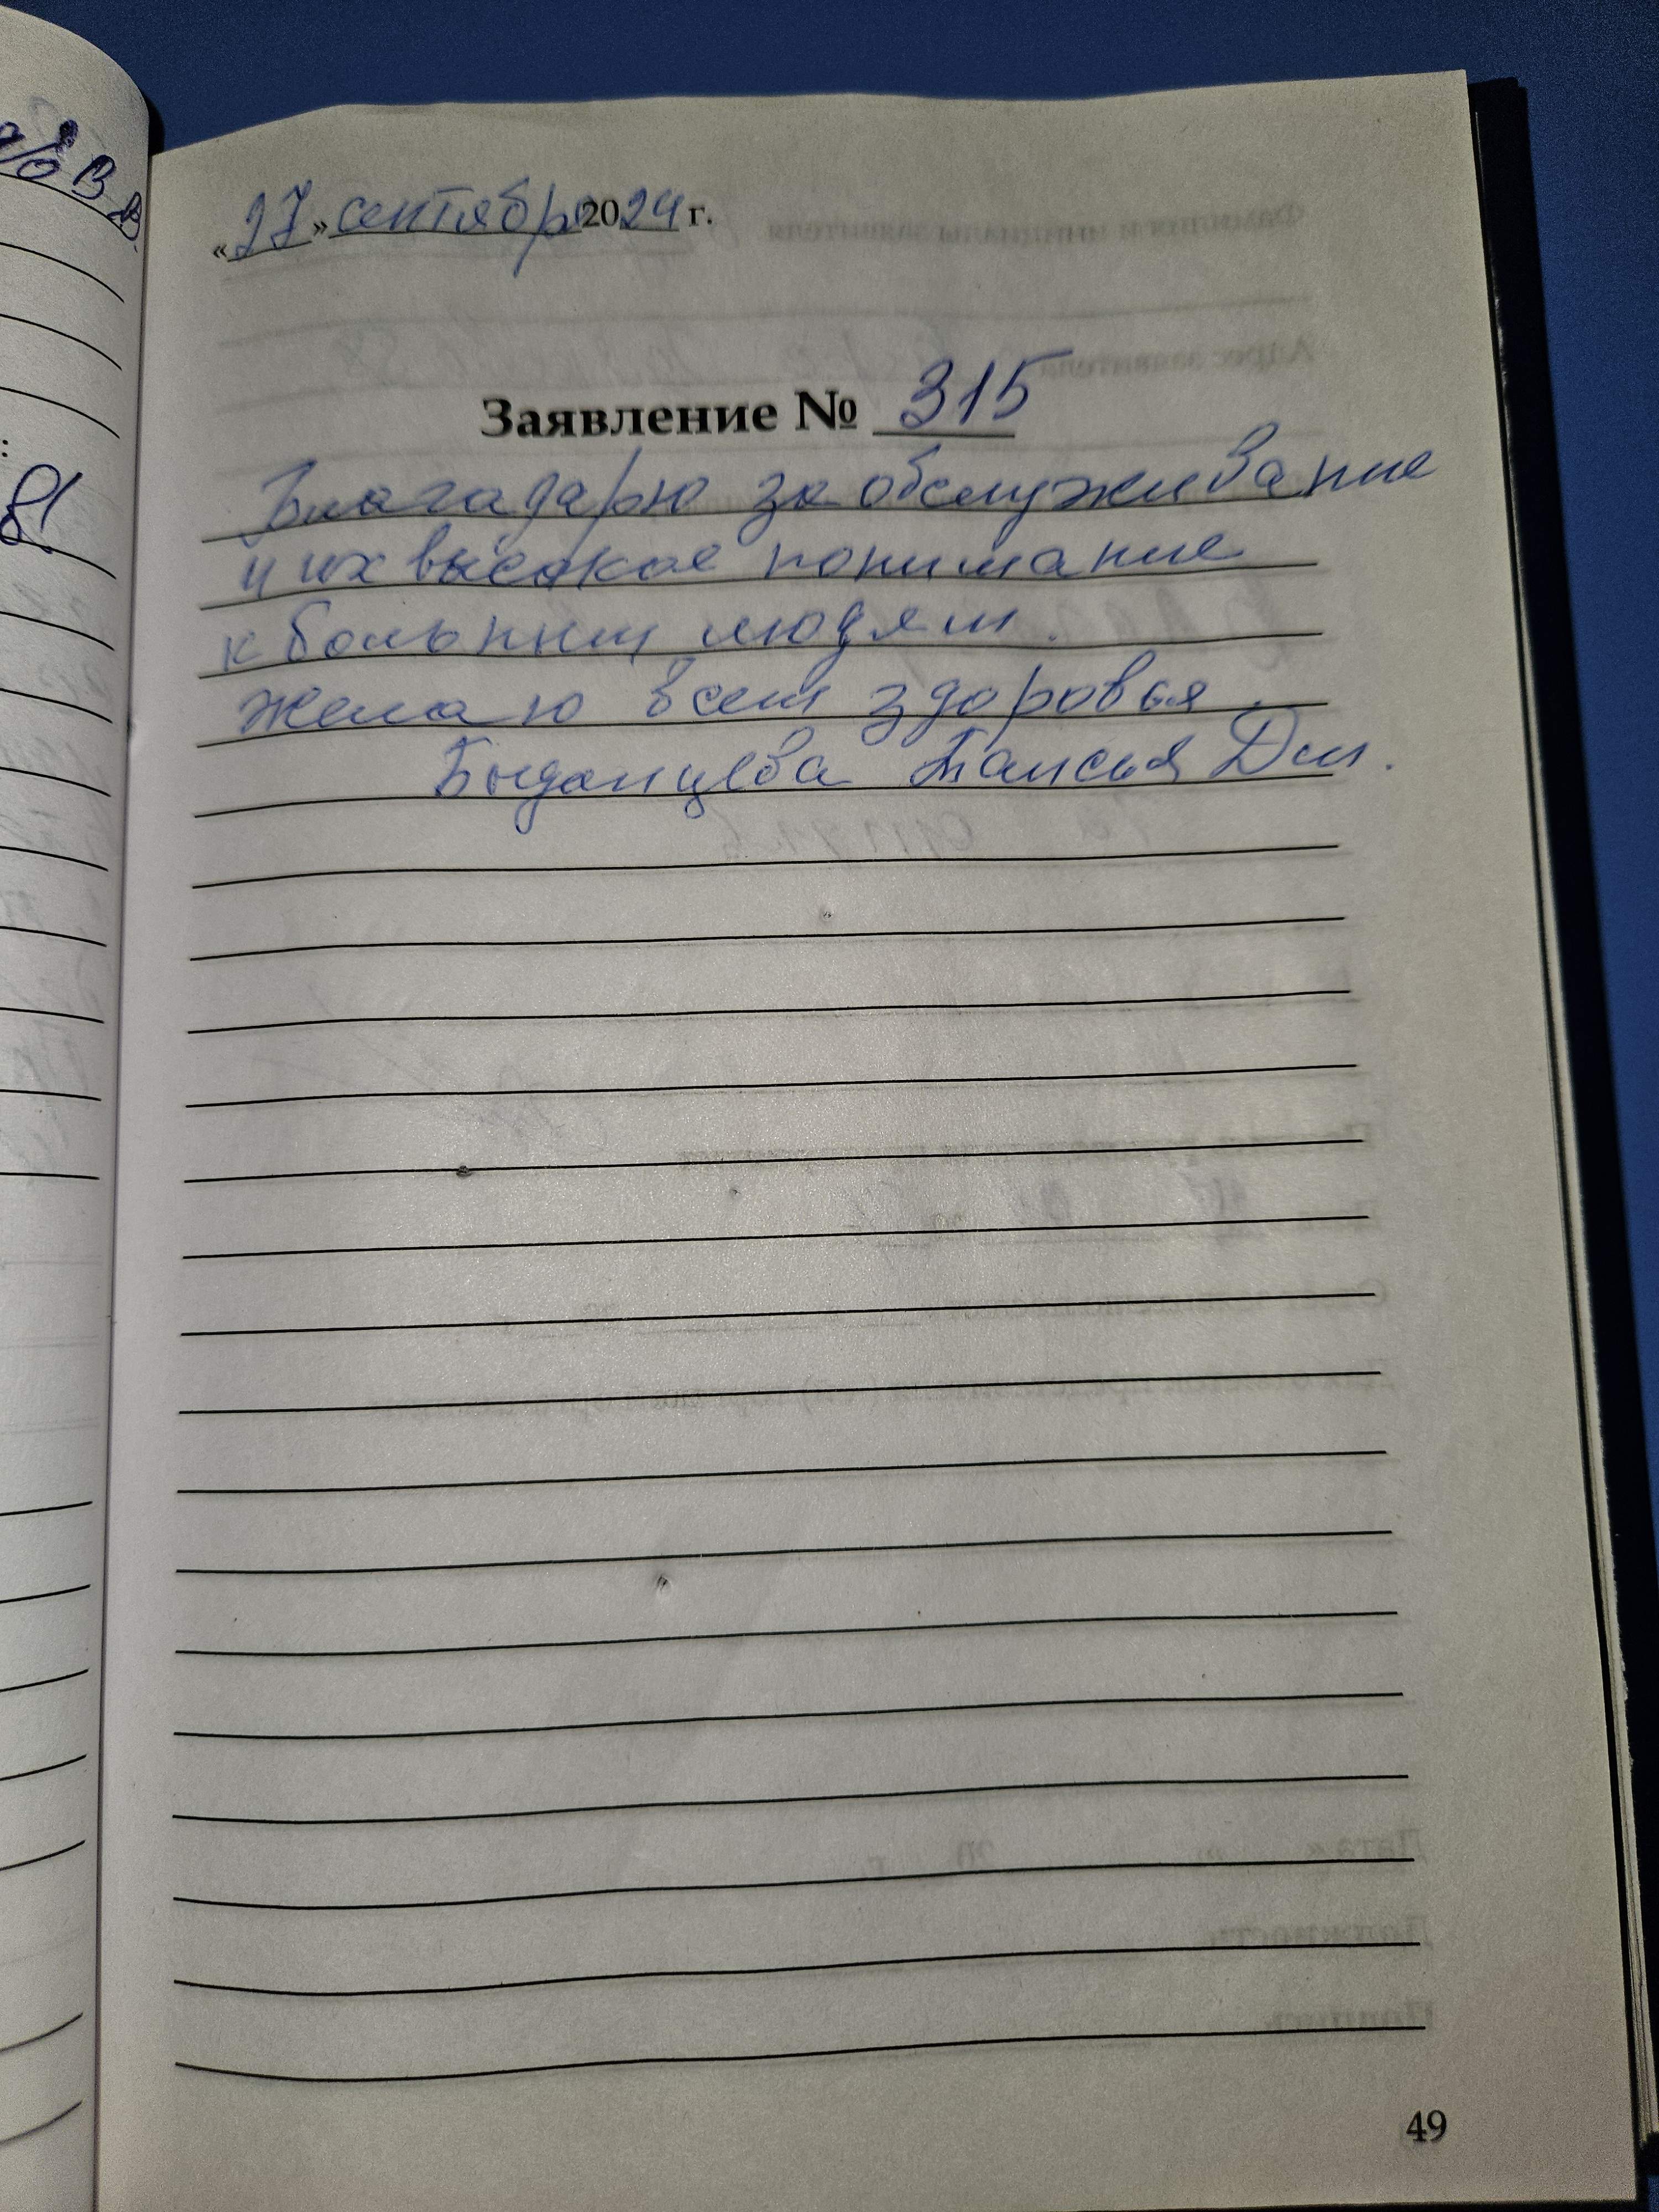 «27» сентября 2024 г.
Заявление № 315
Благадарю за обслуживание
и их высокое понимание
к больным людям.
Желаю всем здоровья.
Быданцева Таисья Дм.
49